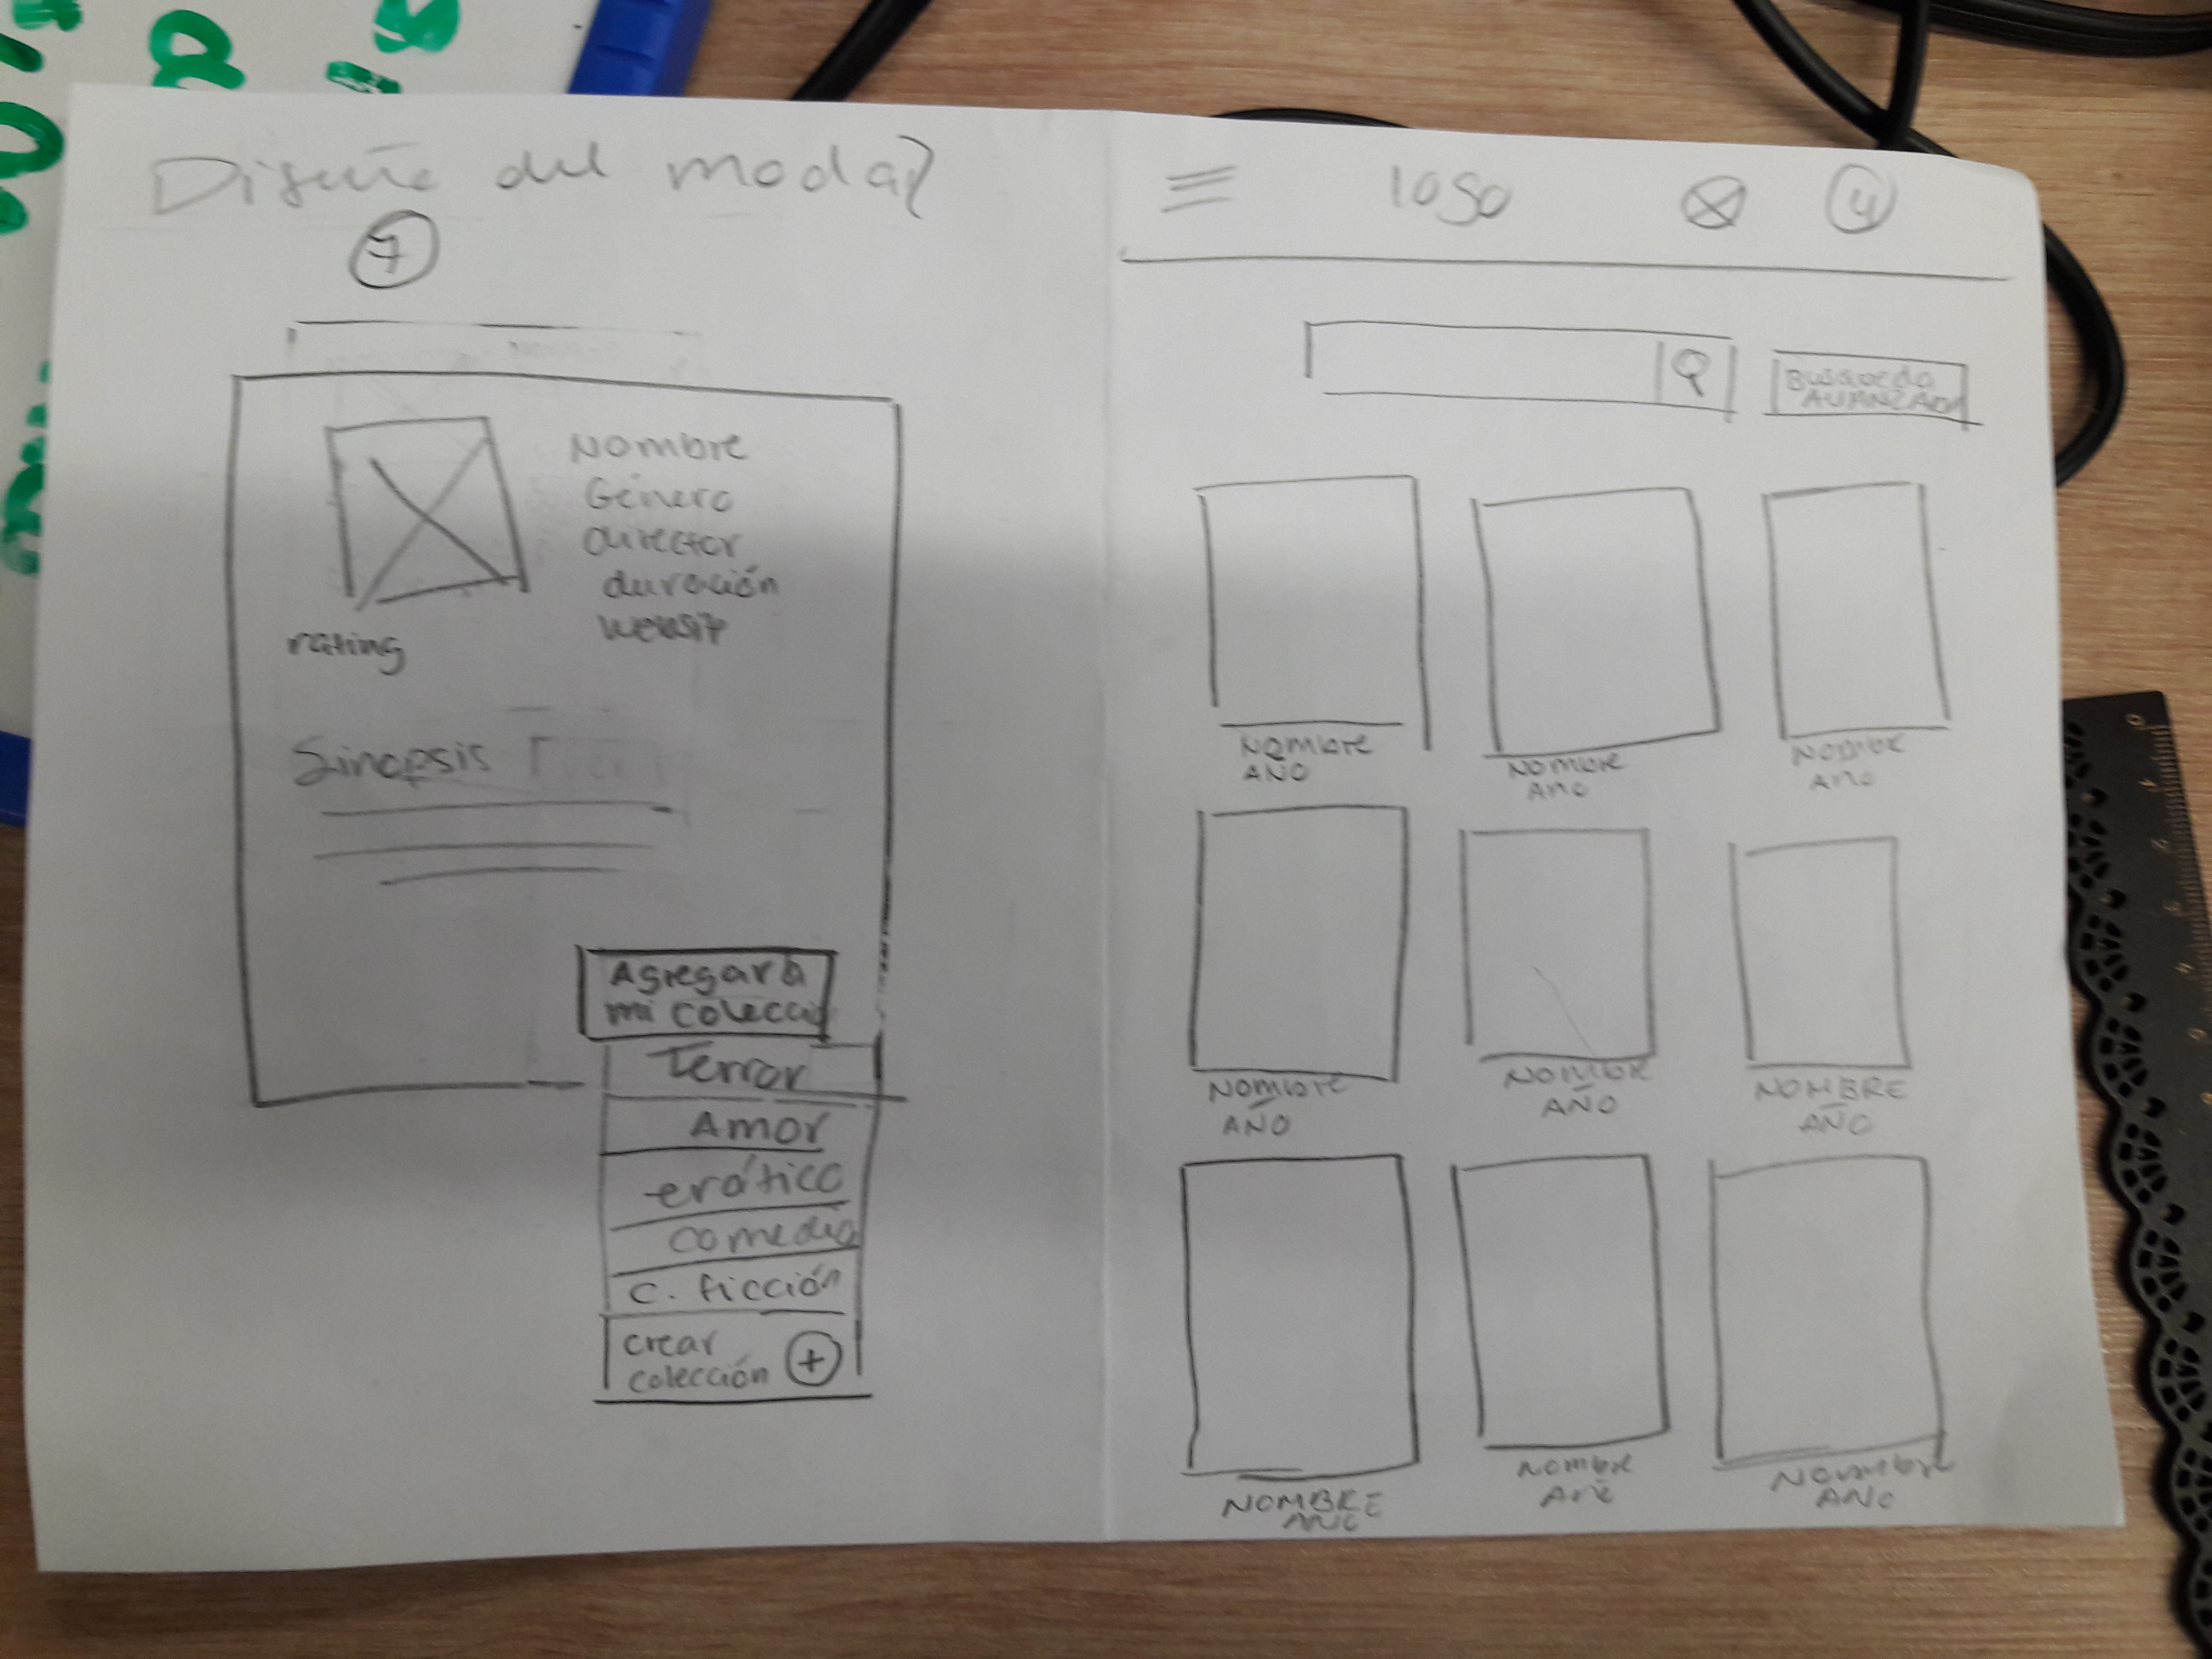 Diseño del modal
7
Nombre
Género
director
duración
rating
Sinopsis
Agregar a
mi colecci
Terror
Amor
erótico
comedia
C. ficción
crear
colección +
logo
4
Búsqueda
Nombre
ANO
Nombre
Ano
Nombre
Ano
Nombre
ANO
Nombre
ANO
NOMBRE
AÑO
NOMBRE
Nombre
Nombre
ANO